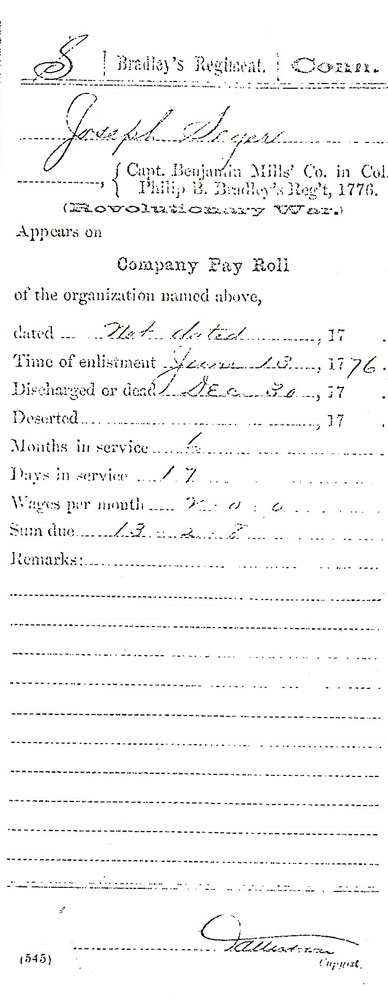 S | Bradley's Regiment. | Conn.
Joseph
Capt. Benjamin Mills' Co. in Col.
Philip B. Bradley's Reg't, 1776.
(Revolutionary War.)
Appears on
Company Pay Roll
of the organization named above,
dated Not dated, 17 .
Time of enlistment June 13, 1776.
Discharged or dead Dec 30, 17 .
Deserted, 17 .
Months in service 6
Days in service 17
Wages per month 2 . 0 . 0
Sum due 13 - 2 . 8
Remarks:
(545)
Copyist.